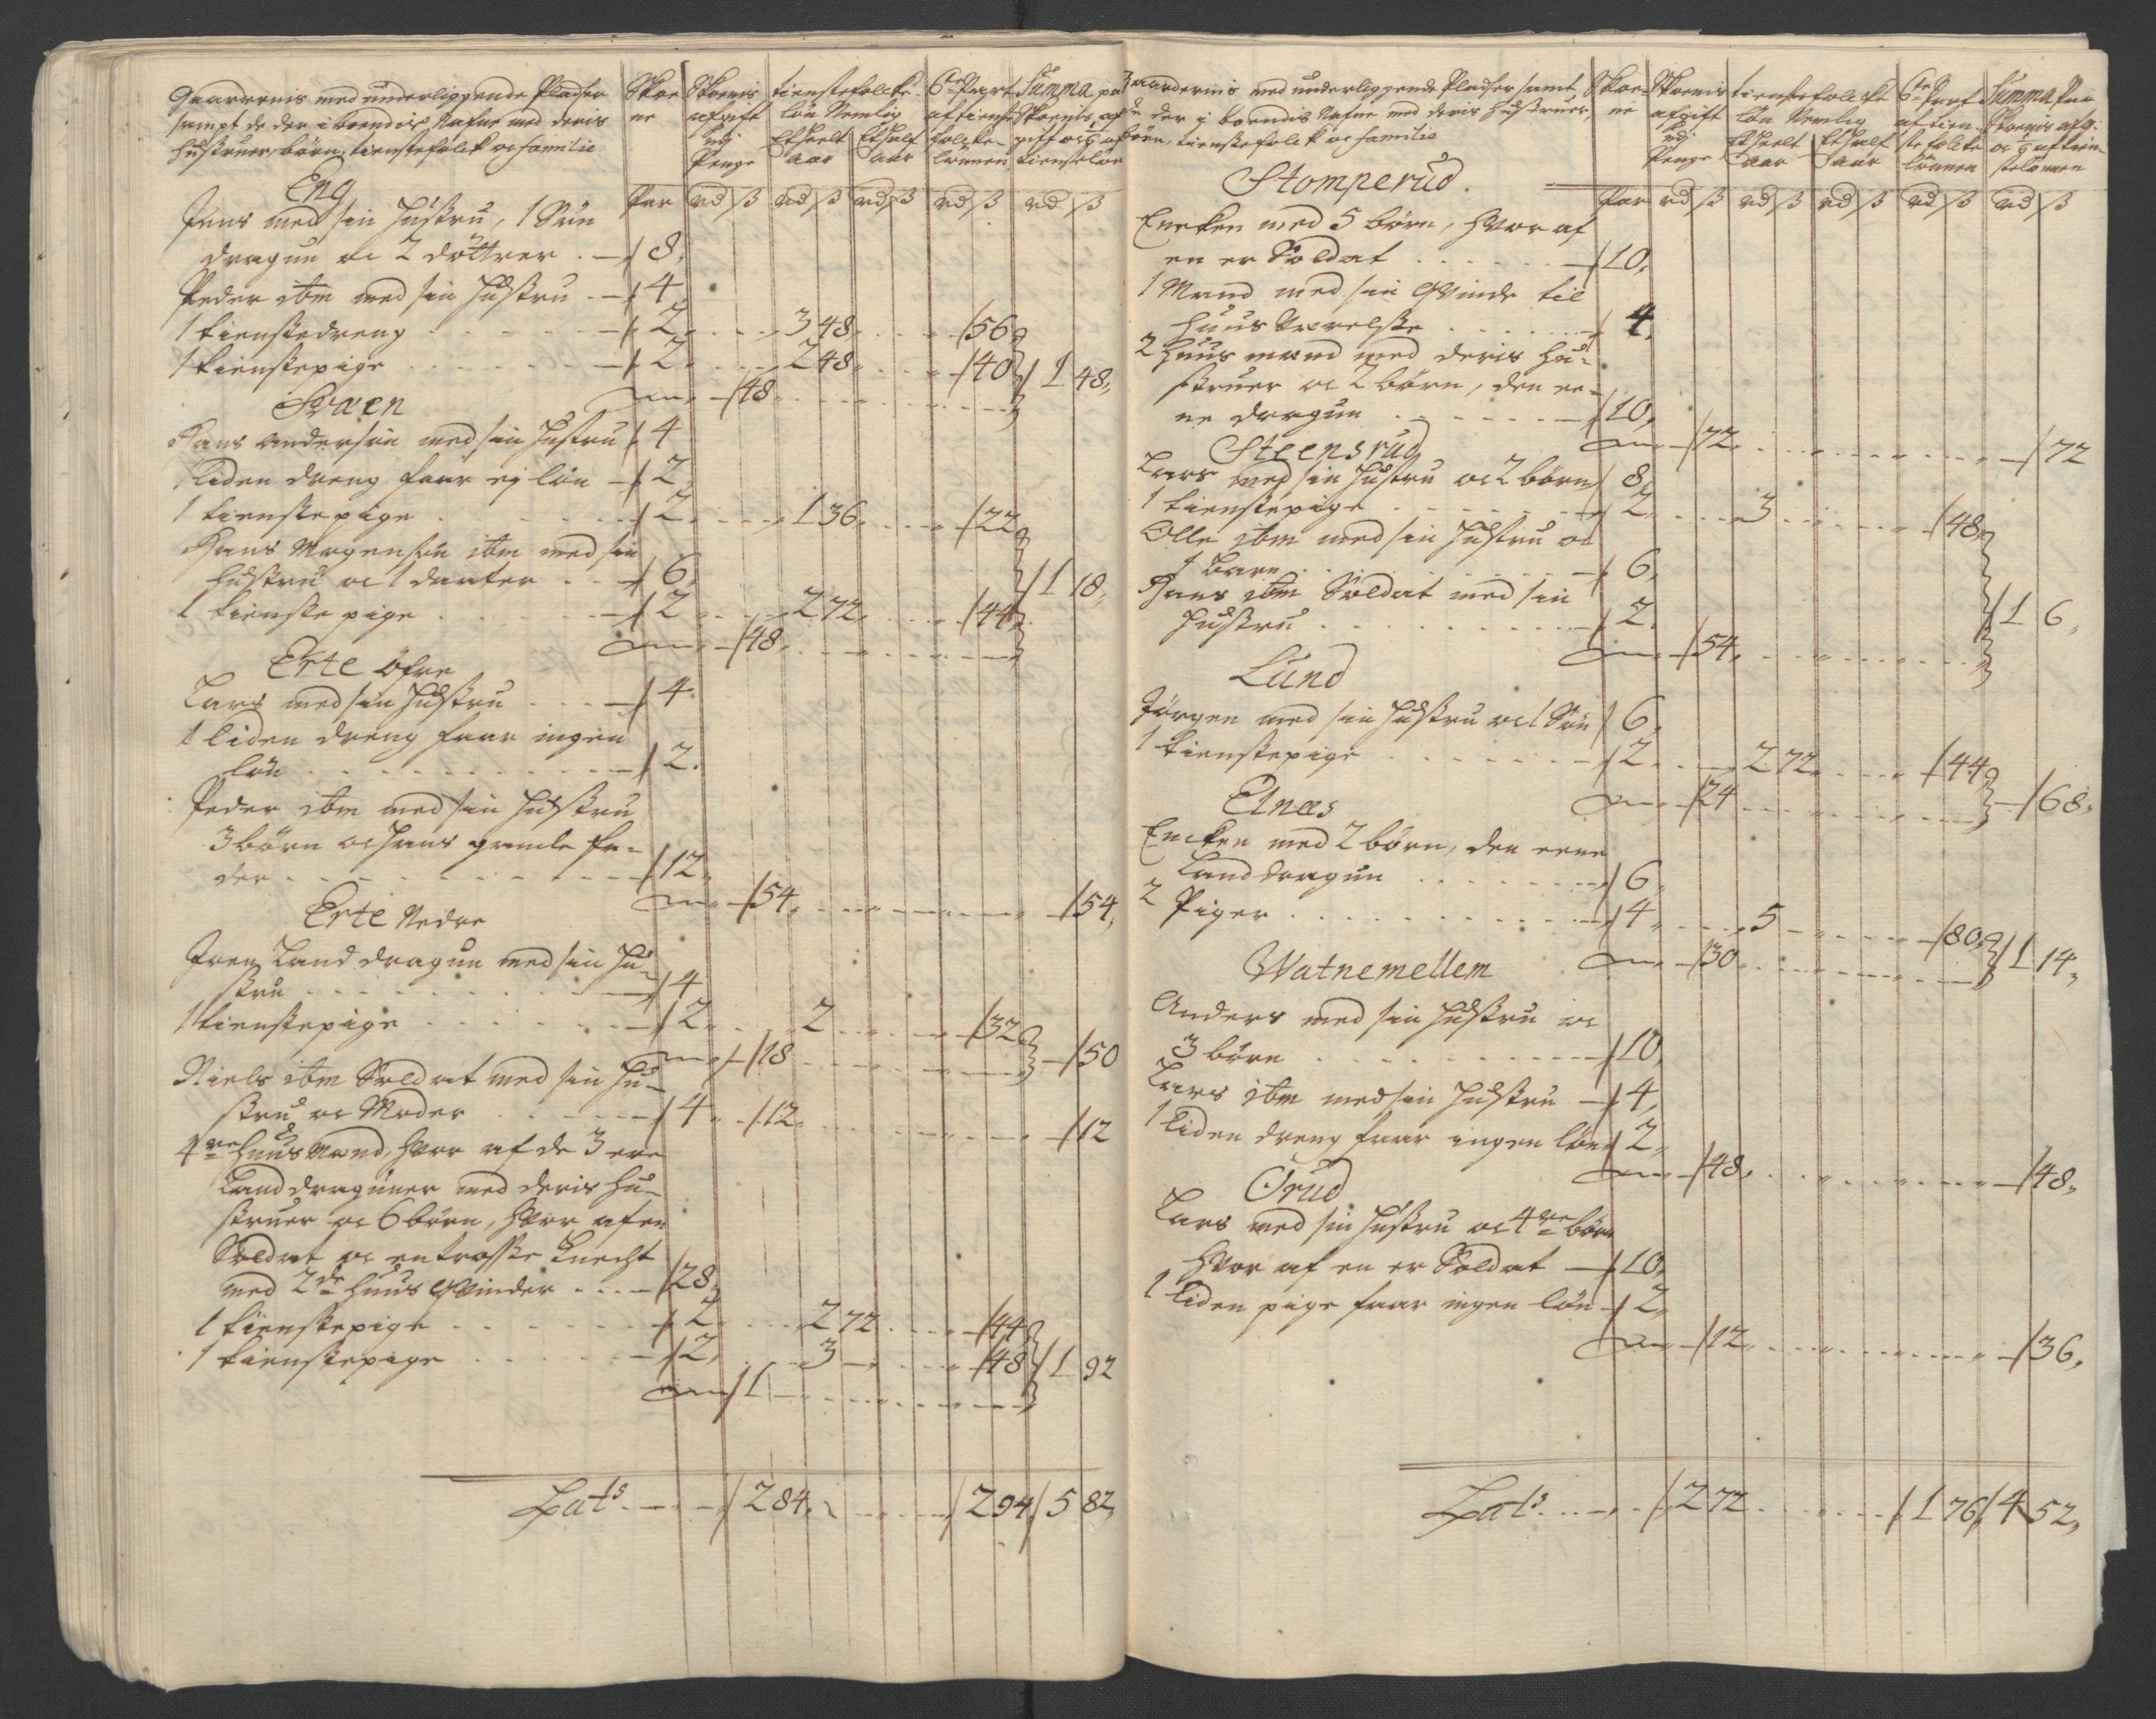 Gaardernis med underliggende Pladser
sampt de der i boendis Nafne med deris
Hustruer, börn, tienstefolck oc familie
Skoe
ne
Skoenis
afgift
udj
Penge
tienstefolckis
lön Nemlig
Et Heelt
aar
Et Half
aar
6te Part
af tienste
folcke
lönnen
Summa paa
Skoenis af
gift oc 1/6 af
tienstelön
Par rd ß rd ß rd ß rd ß rd ß
Eng
Jens med sin Hustru, 1 Sön
dragun oc 2 döttrer . — 8,
Peder ibm med sin Hustru . — 4
1 tienstedreng — 2 3 48 56
1 tienstepige — 2 2 48 40 1 48,
48
Svaen
Hans Andersön med sin Hustru 4
1 liden dreng faar ej lön — 2
1 tienstepige 2 1 36 22
Hans Mogensön ibm med sin
Hustru oc 1 daater 6
1 tienste pige 2 2 72 44 1 18,
48
Erte öfre
Lars med sin Hustru — 4.
1 liden dreng faar ingen
lön — 2.
Peder ibm med sin Hustru
3 börn oc hans gamle fa-
der — 12,
54, 54,
Erte Nedre
Iver Land dragun med sin Hu-
stru — 4
1 tienstepige — 2 2 32
18 50
Niels ibm Soldat med sin Hu-
stru oc Moder — 4 12 12
4re Huus Mænd, Hvor af de 3 ere
Land draguner med deris Hu-
struer oc 6 börn, Hvor af en
Soldat oc en trosse Knecht
med 2de Huus Qvinder — 28,
1 tienstepige — 2 2 72 44
1 tienstepige — 2 3 48 1 92
1
Lats. 2 84, 2 94 5 82,
Gaardernis med underliggende Pladser samt
de der i boendis Nafne med deris Hustruer,
börn, tienstefolck oc familie
Skoe-
ne
Skoenis
afgift
udj
Penge
tienstefolckis
lön Nemlig
Et Heelt
aar
Et Half
aar
6te Part
af tien-
stefolcke
lönnen
Summa Paa
Skoenis afg:
oc 1/6 af tien-
stelönnen
Par rd ß rd ß rd ß rd ß rd ß
Stomperud.
Encken med 5 börn, Hvor af
en er Soldat — 10,
1 Mand med sin Qvinde til
Huus Værelse 4.
2 Huus mænd med deris Hu-
struer oc 2 börn, den ee-
ne dragun — 10,
72 72
Steensrud
Lars med sin Hustru oc 2 börn 8,
1 tienstepige 2 3 48
Olle ibm med sin Hustru oc
1 barn — 6,
Hans ibm Soldat med sin
Hustru — 2. 1 6,
54,
Lund
Jörgen med sin Hustru oc 1 Sön 6,
1 tienstepige — 2 2 72 44
24 68,
Elnæs
Encken med 2 börn, den eene
Land dragun 6,
2 Piger — 4 5 80
30 1 14,
Watnemellem
Anders med sin Hustru oc
3 börn — 10,
Lars ibm med sin Hustru — 4,
1 liden dreng faar ingen lön 2,
48, 48,
Orud
Lars med sin Hustru oc 4re börn
Hvor af en er Soldat — 10,
1 liden pige faar ingen lön — 2,
12 36,
Lats. 2 72 1 76 4 52,